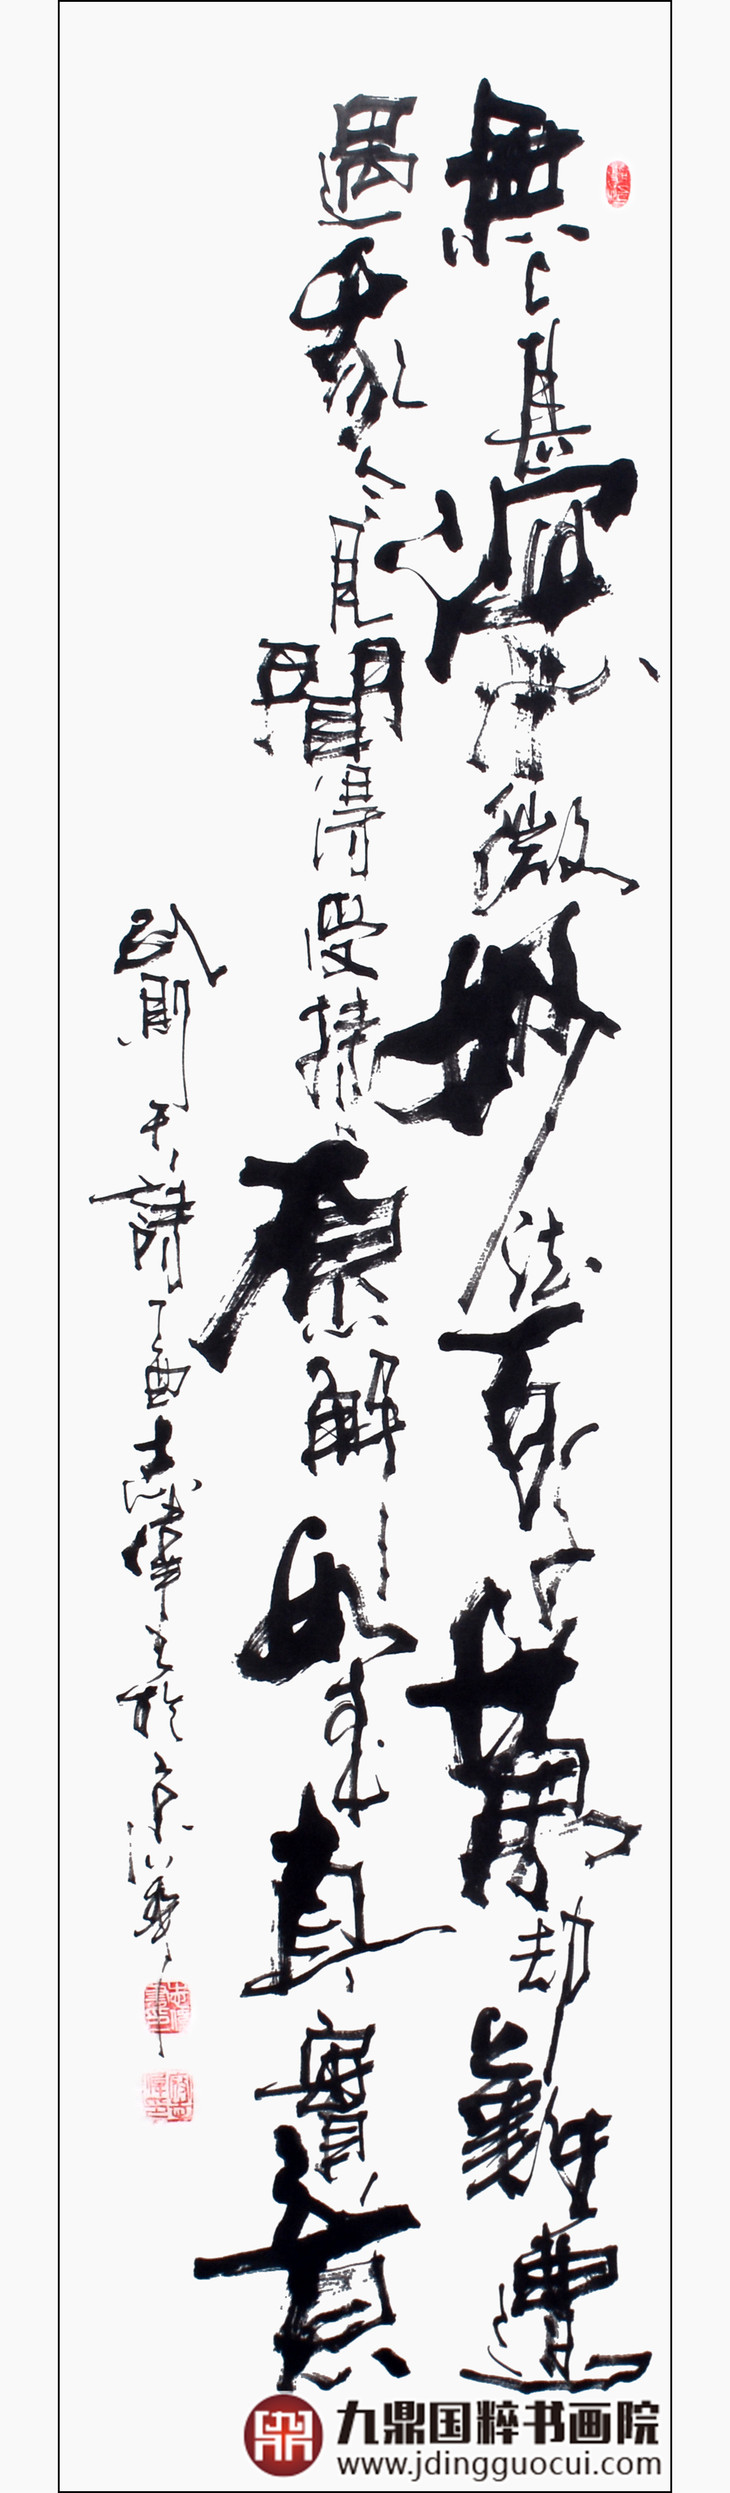 無上甚深微妙法百千萬劫難遭
遇我今見聞得受持願解如來真實意
武則天詩丁酉志偉書於京華
九鼎国粹书画院
www.jdingguocui.com